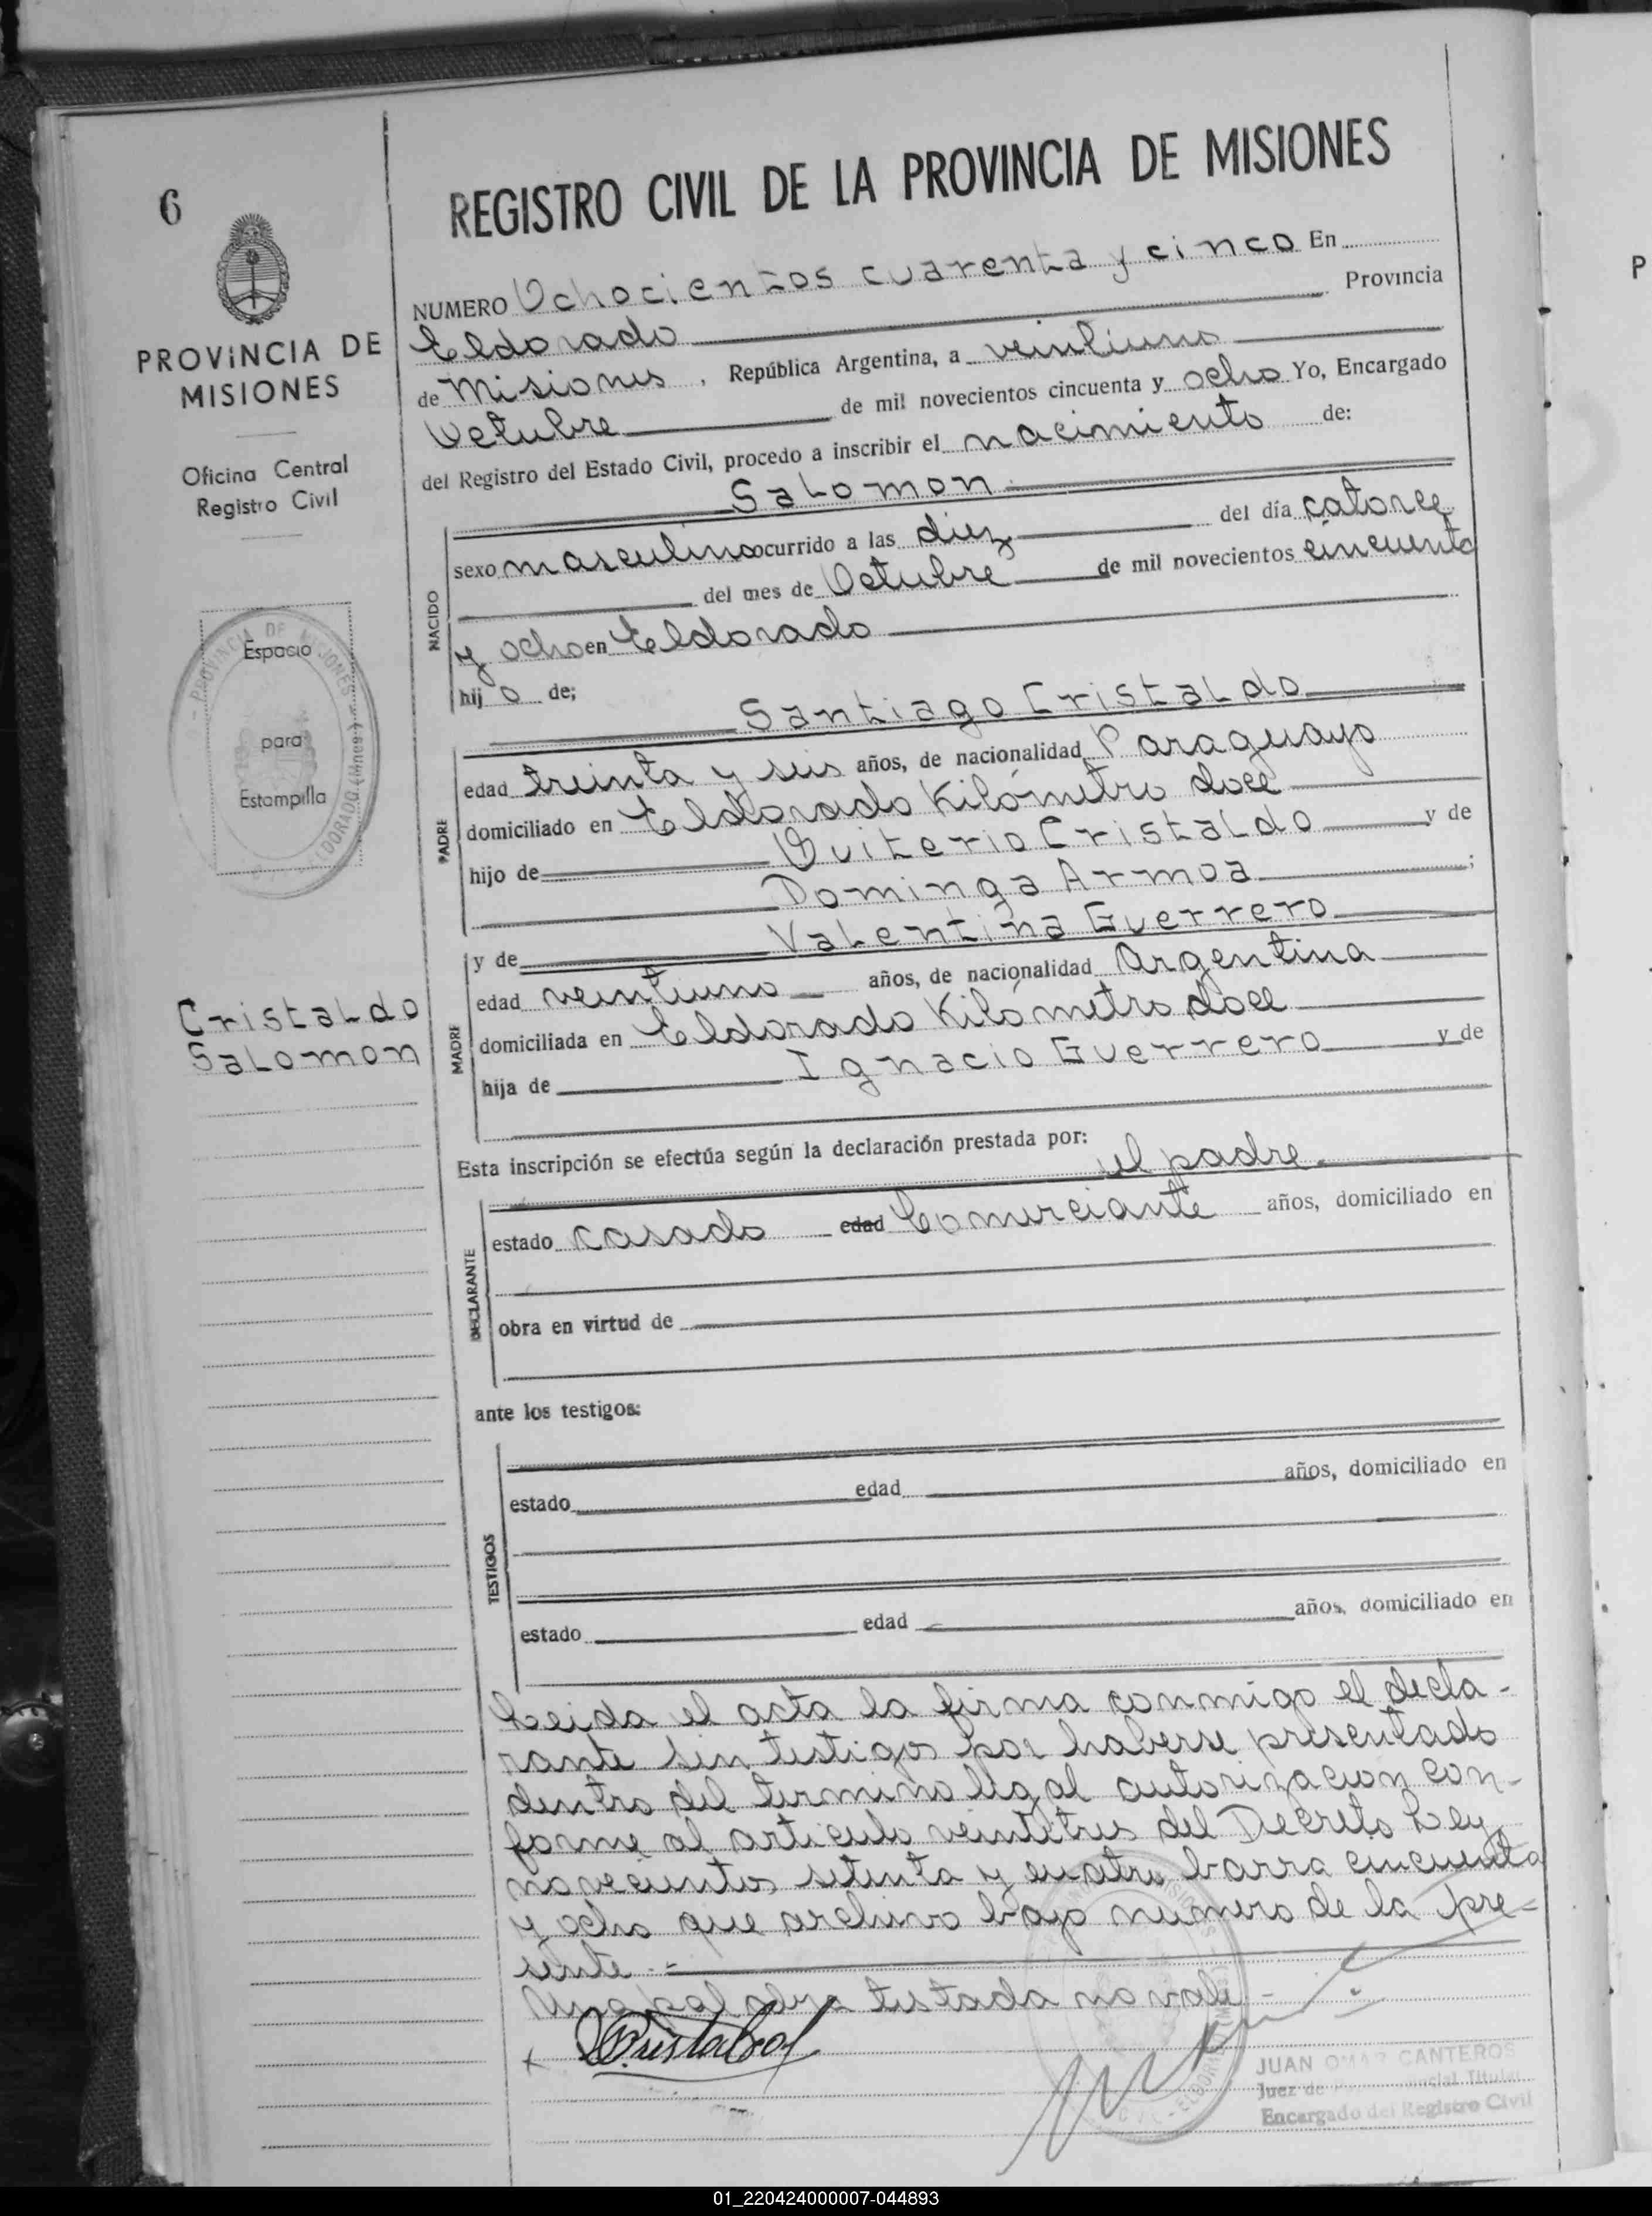 6
PROVINCIA DE
MISIONES
Oficina Central
Registro Civil
PROVINCIA DE MISIONES
ELDORADO (Mnes.)
Espacio
para
Estampilla
Cristaldo
Salomon
REGISTRO CIVIL DE LA PROVINCIA DE MISIONES
NUMERO Ochocientos cuarenta y cinco En
Eldorado Provincia
de Misiones, República Argentina, a veintiuno
Octubre de mil novecientos cincuenta y ocho Yo, Encargado
del Registro del Estado Civil, procedo a inscribir el nacimiento de:
Salomon
NACIDO
sexo masculino ocurrido a las diez del día catorce
del mes de Octubre de mil novecientos cincuenta
y ocho en Eldorado
hijo de;
Santiago Cristaldo
PADRE
edad treinta y seis años, de nacionalidad Paraguayo
domiciliado en Eldorado Kilómetro doce
hijo de Quiterio Cristaldo y de
Dominga Armoa ;
MADRE
y de Valentina Guerrero
edad veintiuno años, de nacionalidad Argentina
domiciliada en Eldorado Kilómetro doce
hija de Ignacio Guerrero y de
Esta inscripción se efectúa según la declaración prestada por:
el padre
DECLARANTE
estado casado edad Comerciante años, domiciliado en
obra en virtud de
ante los testigos:
TESTIGOS
estado edad años, domiciliado en
estado edad años, domiciliado en
Leida el acta la firma conmigo el decla-
rante sin testigos por haberse presentado
dentro del termino legal autorizacion con-
forme al articulo veintitres del Decreto Ley
novecientos setenta y cuatro barra cincuenta
y ocho que archivo bajo numero de la pre-
sente.-
Una palabra testada no vale-
x SCristaldo
JUAN OMAR CANTEROS
Juez de Titular
Encargado del Registro Civil
P
01_220424000007-044893